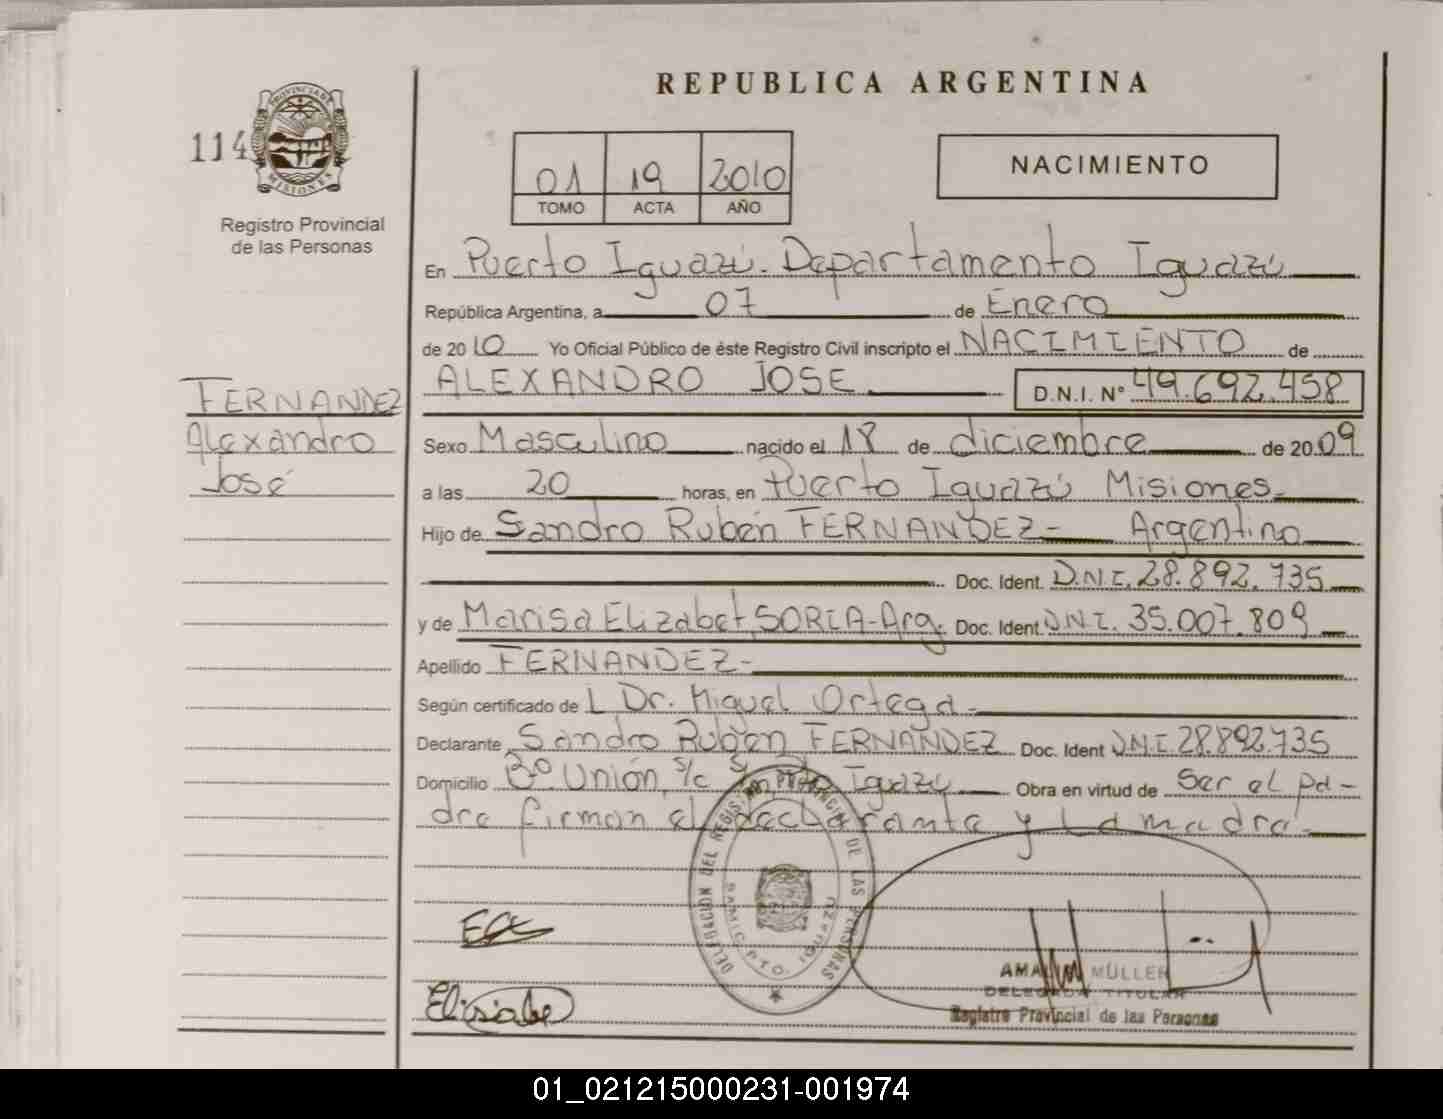 REPUBLICA ARGENTINA
114
PROVINCIA DE MISIONES
Registro Provincial
de las Personas
01 19 2010
TOMO ACTA AÑO
NACIMIENTO
En Puerto Iguazú. Departamento Iguazú
República Argentina, a 07 de Enero
de 2010 Yo Oficial Público de éste Registro Civil inscripto el NACIMIENTO de
ALEXANDRO JOSE D.N.I. Nº 49.692.458
FERNANDEZ
Alexandro
José
Sexo Masculino nacido el 18 de diciembre de 2009
a las 20 horas, en Puerto Iguazú Misiones
Hijo de Sandro Rubén FERNANDEZ- Argentino
Doc. Ident. D.N.I. 28.892.735
y de Marisa Elizabet SORIA-Arg. Doc. Ident D.N.I. 35.007.809
Apellido FERNANDEZ-
Según certificado de L Dr. Miguel Ortega-
Declarante Sandro Rubén FERNANDEZ Doc. Ident D.N.I. 28.892.735
Domicilio Bº Unión, s/c Iguazú Obra en virtud de ser el pa-
dre firman el declarante y la madre
DELEGACION DEL REGIS. PROVINCIAL DE LAS PERSONAS
PTO. IGUAZU
MÜLLER
DELEGADA TITULAR
Registro Provincial de las Personas
01_021215000231-001974